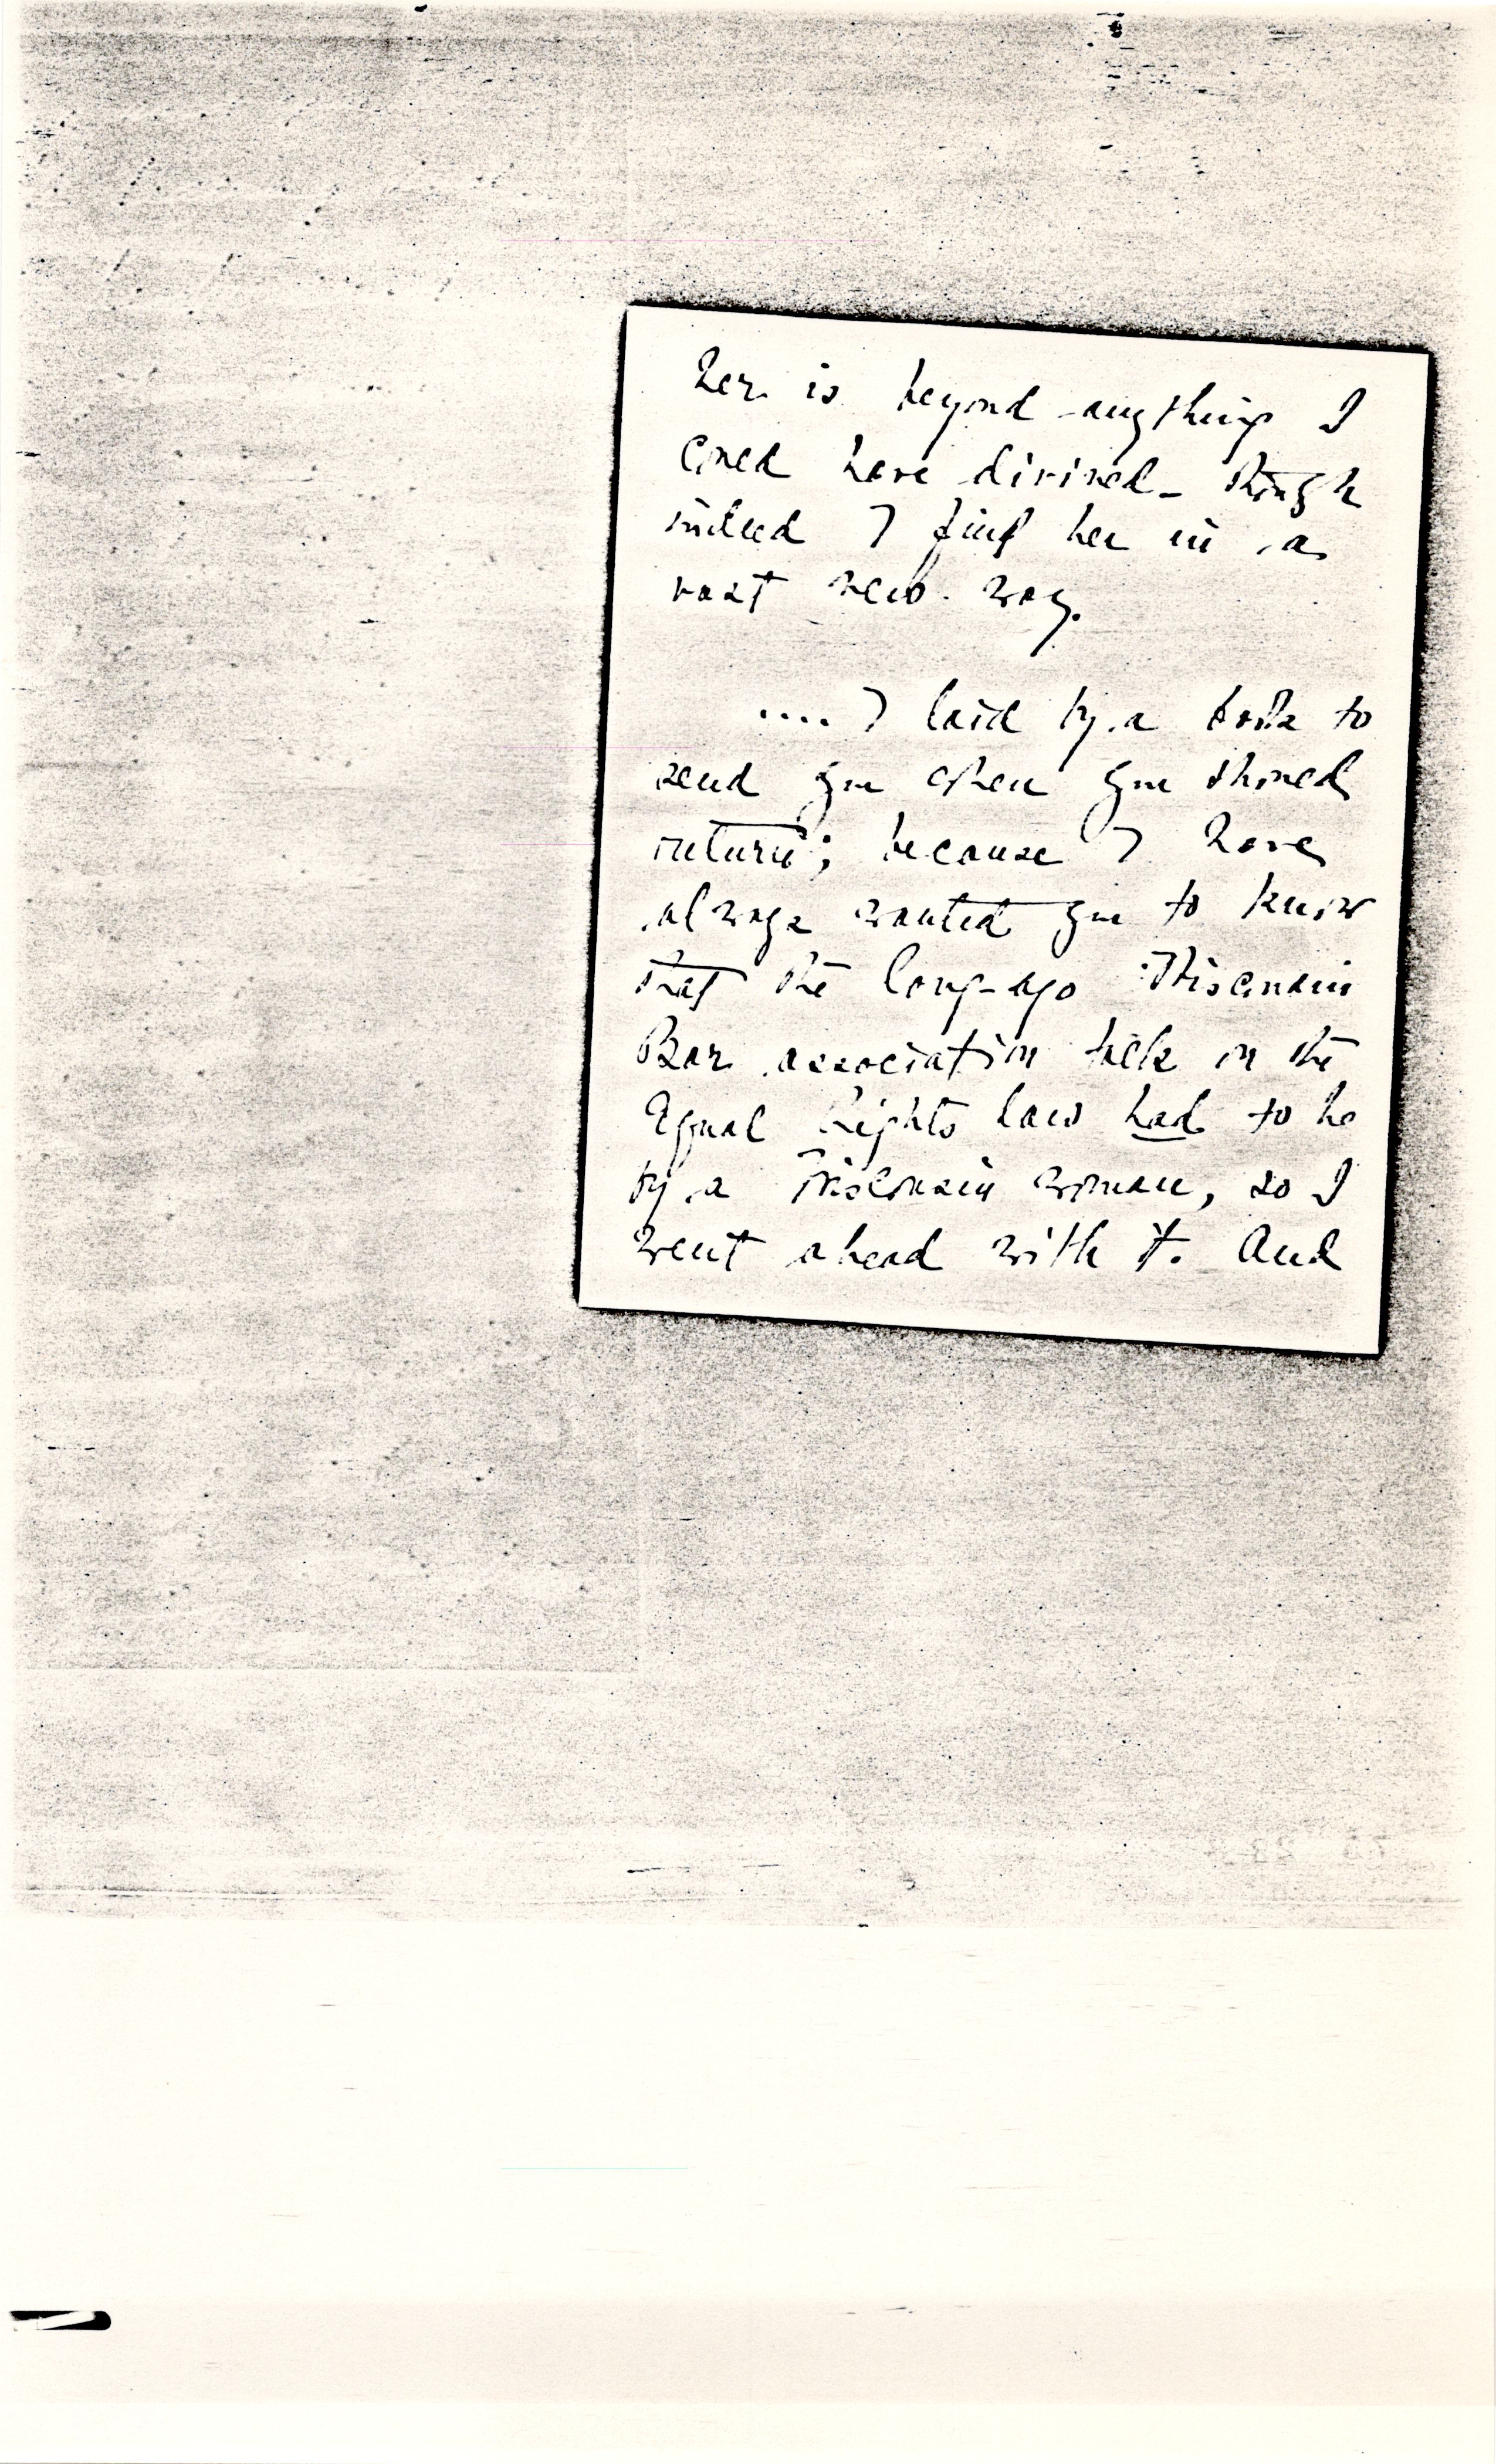 her is beyond anything I
could have divined - though
indeed I find her in a
vast new way.
.... I laid by a book to
send you when you should
return; because I have
always wanted you to know
that the long-ago Wisconsin
Bar association talk on the
Equal Rights law had to be
by a Wisconsin woman, so I
went ahead with it. And